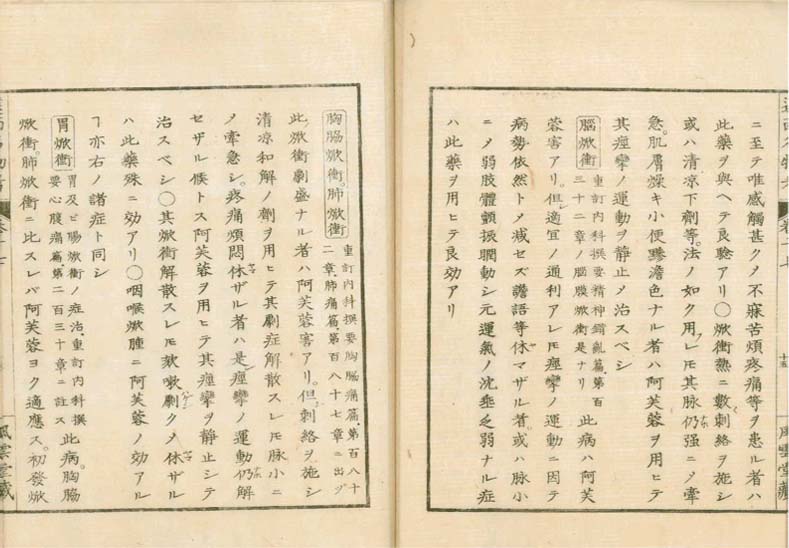 ニ至テ唯感觸甚クメ不寐苦煩疼痛等ヲ患ル者ハ
此藥ヲ與ヘテ良驗アリ○焮衝熱ニ數刺絡ヲ施シ
或ハ清凉下劑等。法ノ如ク用レモ其脉仍强ニメ牽
急。肌膚燥キ小便黲澹色ナル者ハ阿芙蓉ヲ用ヒテ
其痙攣ノ運動ヲ靜止メ治スベシ
腦焮衝 重訂內科撰要精神錯亂篇。第百三十二章ノ腦膜焮衝是ナリ 此病ハ阿芙
蓉害アリ。但適宜ノ通利アレモ痙攣ノ運動ニ因テ
病勢依然トメ减セズ譫語等休マザル者。或ハ脉小
ニメ弱肢體顫振瞤動シ元運氣ノ沈埀之弱ナル症
ハ此藥ヲ用ヒテ良効アリ
十五
風雲堂藏
胸膓焮衝。肺焮衝 重訂內科撰要胸膓痛篇。第百八十二章。肺痛篇。第百八十七章ニ出ヅ
此焮衝劇盛ナル者ハ阿芙蓉害アリ。但刺絡ヲ施シ
清凉和解ノ劑ヲ用ヒテ其劇症解散スレモ脉小ニ
メ牽急シ。疼痛煩悶休ザル者ハ是痙攣ノ運動仍解
セザル候トス阿芙蓉ヲ用ヒテ其痙攣ヲ靜止シテ
治スベシ○其焮衝解散スレモ欬嗽劇クメ休ザル
ハ此藥殊ニ効アリ○咽喉焮腫ニ阿芙蓉ノ効アル
ヿ亦右ノ諸症ト同シ
胃焮衝 胃及ヒ膓焮衝ノ症治。重訂內科撰要心腹痛篇第二百三十章ニ註ス 此病。胸膓
焮衝。肺焮衝ニ比スレバ阿芙蓉ヨク適應ス。初發焮
風雲堂藏